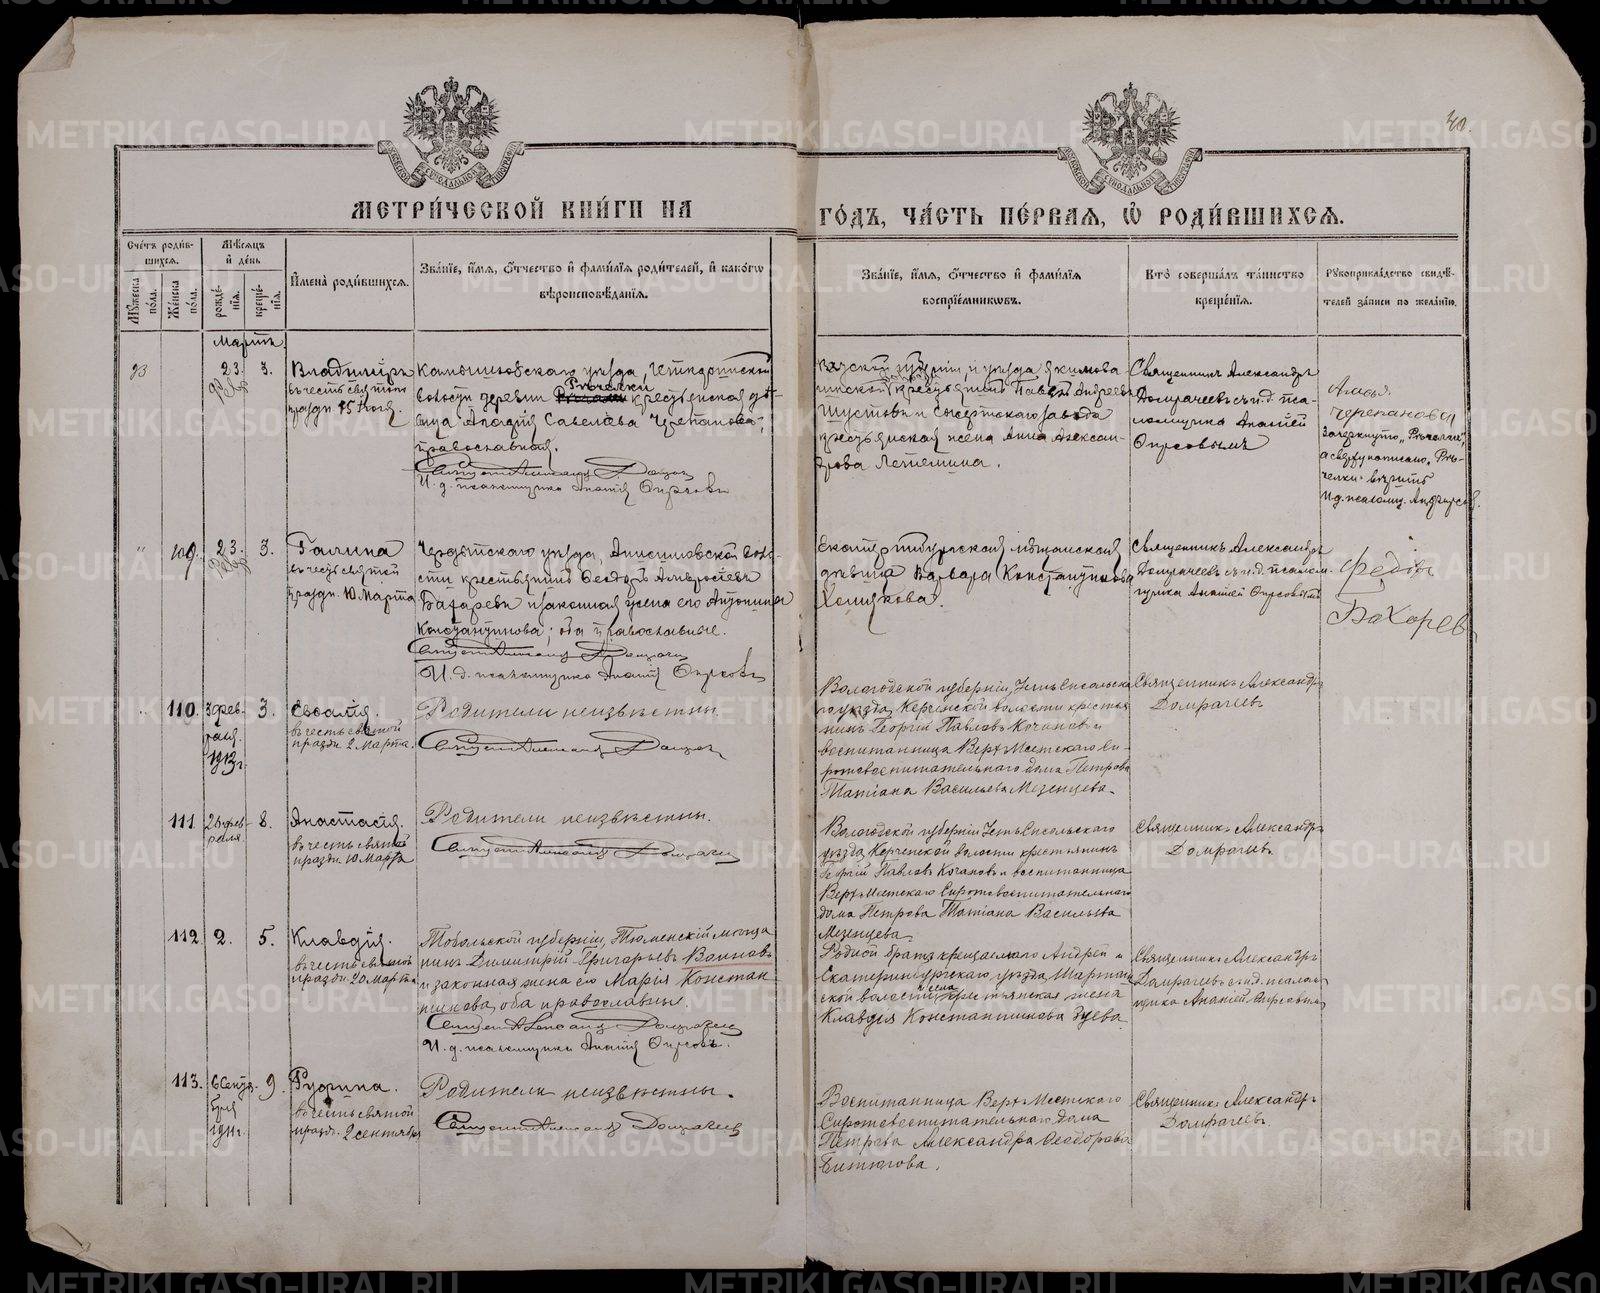 40.
МЕТРИЧЕСКОЙ КНИГИ НА
ГОДЪ, ЧАСТЬ ПЕРВАЯ, Ѡ РОДИВШИХСЯ.
Счетъ родившихся.
Мужеска пола.
Женска пола.
Мѣсяцъ и день
рожденія.
крещенія.
Имена родившихся.
Званіе, имя, отчество и фамилія родителей, и какогѡ
вѣроисповѣданія.
Званіе, имя, отчество и фамилія
воспріемниковъ.
Кто совершалъ таинство
крещенія.
Рукоприкладство свидѣтелей записи по желанію.
Мартъ.
93
23.
3.
Владиміръ
въ честь святого
праздн. 15 Іюля.
Камышловскаго уѣзда, Четкаринской
волости деревни Рѣчелки крестьянская дѣ-
вица Савелева Черепанова,
православная.
И. д. псаломщика Ананій Фирсовъ
губерніи и уѣзда
крестьянинъ Павелъ Андреевъ
Шустовъ и Сысертскаго завода
крестьянская жена Анна Алексан-
дрова Летемина.
Священникъ Александръ
Домрачевъ и и. д. пса-
ломщика Ананій
Фирсовъ
Черепанова
Зачеркнуто
а сверху написано „Рѣ-
челки" вѣрить
И.д. псаломщ. Ан. Фирсов.
"
109.
23.
3.
Галина
въ честь святой
праздн. 10 Марта
уѣзда, Анисимовской воло-
сти крестьянинъ Ѳеодоръ Амвросіевъ
Бахаревъ и законная жена его Антонина
Константинова; оба православные.
И. д. псаломщика Ананій Фирсовъ
Екатеринбургская мѣщанская
дѣвица Варвара Константинова
Хомякова.
Священникъ Александръ
Домрачевъ и и. д. псалом-
щика Ананій Фирсовъ
Федоръ
Бахорев
"
110.
3 фев-
раля
1913 г.
3.
Евѳалія.
въ честь святой
праздн. 2 Марта.
Родители неизвѣстны.
Священникъ Александръ Домрачев
Вологодской губерніи, Усть-Сысольска-
го уѣзда, Керчемской волости крестья-
нинъ Георгій Павловъ Кочановъ и
воспитанница Верхъ-Исетскаго Си-
ротовоспитательнаго дома Петрова
Татіана Васильева Мезенцева.
Священникъ Александръ
Домрачевъ.
111.
26 фев-
раля
8.
Анастасія.
въ честь святой
праздн. 10 Марта
Родители неизвѣстны.
Священникъ Александръ Домрачевъ
Вологодской губерніи Усть-Сысольскаго
уѣзда Керчемской волости крестьянинъ
Георгій Павловъ Кочановъ и воспитанница
Верхъ-Исетскаго Сиротовоспитательнаго
дома Петрова Татіана Васильева
Мезенцева
Священникъ Александръ
Домрачевъ
112
2.
5.
Клавдія.
въ честь святой
праздн. 20 Марта
Тобольской губерніи, Тюменскій мѣща
нинъ Димитрій Григорьевъ Воиновъ
и законная жена его Марія Констан
тинова, оба православные.
Священникъ Александръ Домрачевъ
И. д. псаломщика Ананій Фирсовъ.
Родной братъ крещаемаго Андрей и
Екатеринбургскаго уѣзда Шарташ
ской волости села крестьянская жена
Клавдія Константинова Зуева
Священникъ Александръ
Домрачевъ и и.д. псалом
щика Ананій Фирсовъ
113.
6 Сентя-
бря
1911 г.
9.
Руфина.
въ честь святой
праздн. 2 сентября
Родители неизвѣстны.
Священникъ Александръ Домрачевъ
Воспитанница Верхъ-Исетскаго
Сиротовоспитательнаго дома
Петрова Александра Ѳеодорова
Битюгова.
Священникъ Александръ
Домрачевъ.
METRIKI.GASO-URAL.RU